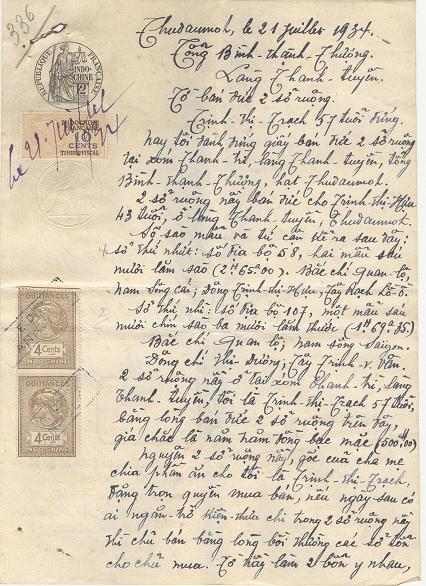 336
RÉPUBLIQUE FRANÇAISE
INDO-CHINE
12
INDOCHINE
FRANÇAISE
CENTS
TIMBRE FISCAL
le 21 Juillet
1934
Thudaumot, le 21 Juillet 1934.
Tổng Bình-thành-Thượng.
Làng Thanh-tuyền.
Tờ bán đứt 2 sở ruộng.
Trịnh-thị-Trạch 57 tuổi đứng.
nay tôi đành đứng giấy bán đứt 2 sở ruộng
tại xóm Thanh-trì, làng Thanh-tuyền, tổng
Bình-thành-Thượng, hạt Thudaumot.
2 sở ruộng nầy bán đứt cho Trịnh-thị-Hựu
43 tuổi, ở làng Thanh-tuyền, Thudaumot.
Số sào mẫu và tứ cận kể ra sau đây;
số thứ nhứt: số địa bộ 58, hai mẫu sáu
mươi lăm sào (2H65a00). Bắc chỉ Quan-lộ,
Nam Sông cái; Đông Trịnh-thị-Hựu; Tây Rạch
Số thứ nhì: số địa bộ 107, một mẫu sáu
mươi chín sào ba mươi lăm thước (1H69a35)
Bắc chỉ Quan lộ; nam sông Saigon.
Đông chỉ Thị-Dương; Tây Trịnh-v-Vân.
2 sở ruộng nầy ở tại xóm Thanh-trì, làng
Thanh-tuyền, tôi là Trịnh-thị-Trạch 57 tuổi,
bằng lòng bán đứt 2 sở ruộng trên đây,
giá chắc là năm trăm đồng bạc mặc (500$00)
nguyên 2 sở ruộng nầy, gốc của cha mẹ
chia phần ăn cho tôi là Trịnh-thị-Trạch,
đặng trọn quyền mua bán, nếu ngày sau có
ai ngăn-trở kiện-thưa chi trong 2 sở ruộng nầy
thì chủ bán bằng lòng bồi thường các sở tổn
cho chủ mua. Tờ nầy làm 2 bổn y nhau,
QUITTANCES
4 Cents
INDO-CHINE
QUITTANCES
4 Cents
INDO-CHINE